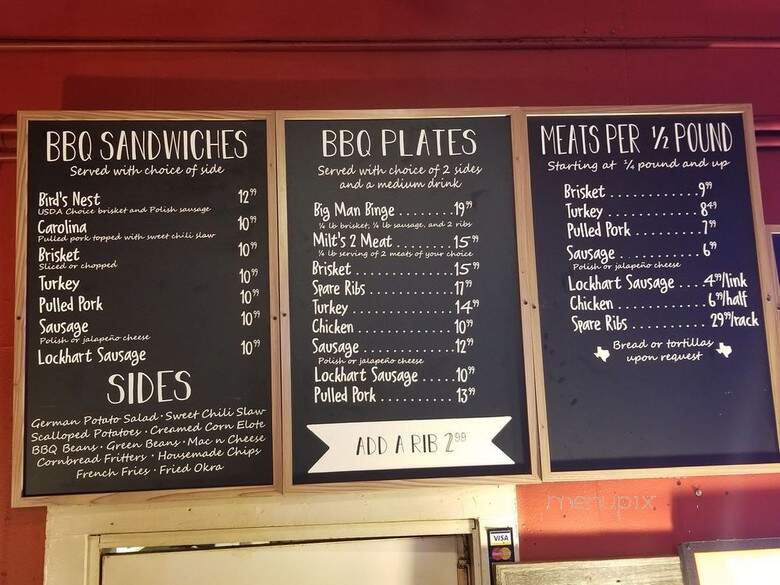 BBQ SANDWICHES
Served with choice of side
Bird's Nest 12⁹⁹
USDA Choice brisket and Polish sausage
Carolina 10⁹⁹
Pulled pork topped with sweet chili slaw
Brisket 10⁹⁹
Sliced or chopped
Turkey 10⁹⁹
Pulled Pork 10⁹⁹
Sausage 10⁹⁹
Polish or jalapeño cheese
Lockhart Sausage 10⁹⁹
SIDES
German Potato Salad · Sweet Chili Slaw
Scalloped Potatoes · Creamed Corn Elote
BBQ Beans · Green Beans · Mac n Cheese
Cornbread Fritters · Housemade Chips
French Fries · Fried Okra
BBQ PLATES
Served with choice of 2 sides
and a medium drink
Big Man Binge ......... 19⁹⁹
¼ lb brisket, ¼ lb sausage, and 2 ribs
Milt's 2 Meat ......... 15⁹⁹
¼ lb serving of 2 meats of your choice
Brisket ............... 15⁹⁹
Spare Ribs ............ 17⁹⁹
Turkey ................ 14⁹⁹
Chicken ............... 10⁹⁹
Sausage ............... 12⁹⁹
Polish or jalapeño cheese
Lockhart Sausage ..... 10⁹⁹
Pulled Pork ........... 13⁹⁹
ADD A RIB 2⁹⁹
MEATS PER ½ POUND
Starting at ¼ pound and up
Brisket ............... 9⁹⁹
Turkey ................ 8⁴⁹
Pulled Pork ........... 7⁹⁹
Sausage ............... 6⁹⁹
Polish or jalapeño cheese
Lockhart Sausage .... 4⁹⁹/link
Chicken ............. 6⁹⁹/half
Spare Ribs .......... 29⁹⁹/rack
Bread or tortillas
upon request
menupix
VISA